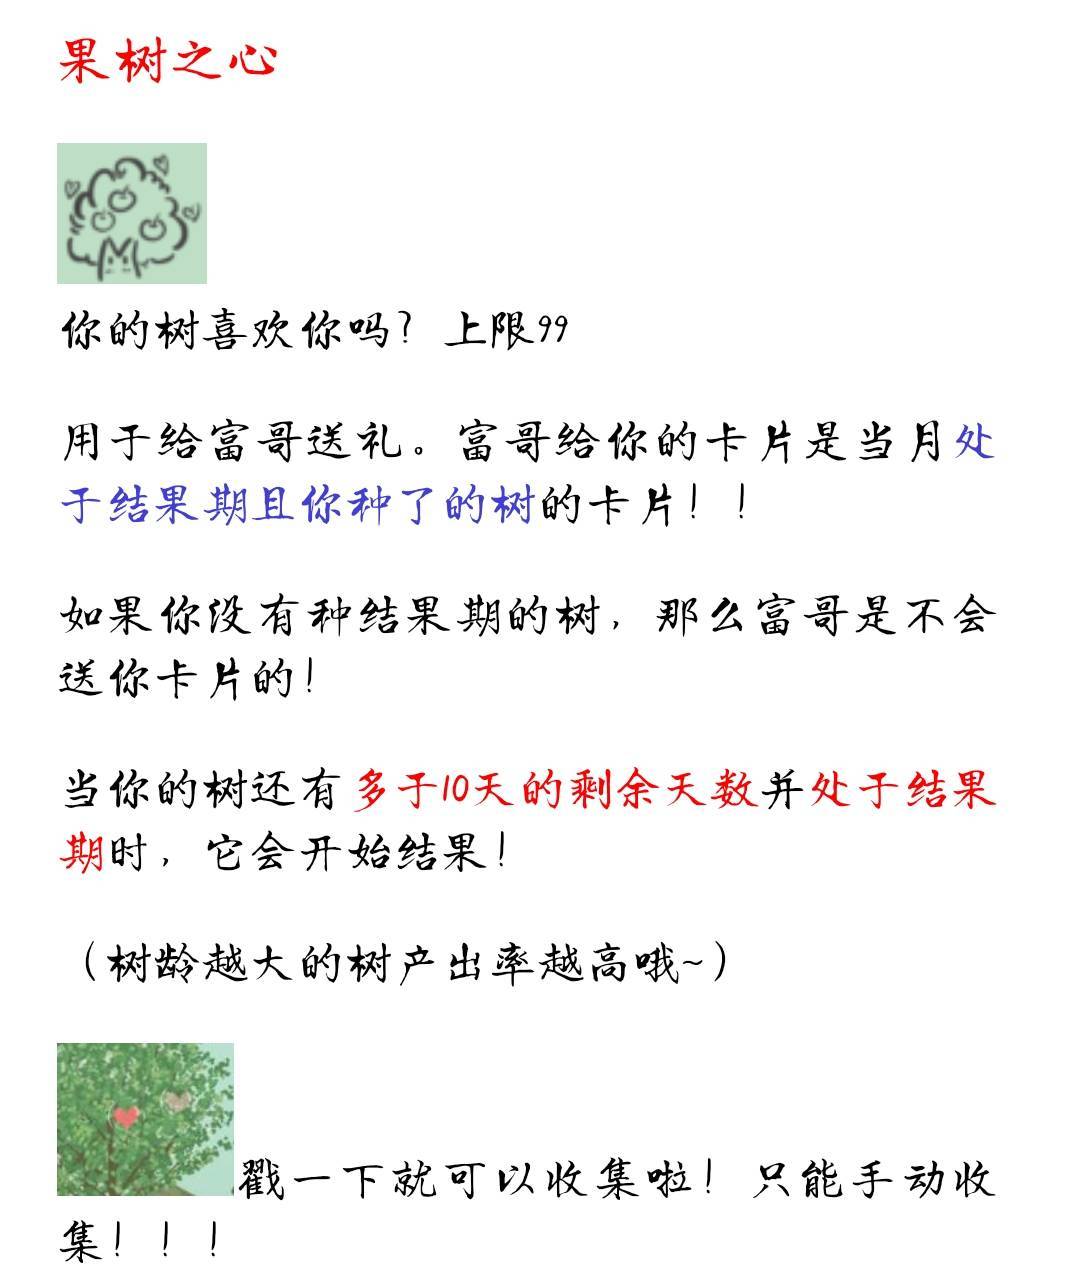 果树之心
你的树喜欢你吗？上限99
用于给富哥送礼。富哥给你的卡片是当月处
于结果期且你种了的树的卡片！！
如果你没有种结果期的树，那么富哥是不会
送你卡片的！
当你的树还有多于10天的剩余天数并处于结果
期时，它会开始结果！
（树龄越大的树产出率越高哦~）
戳一下就可以收集啦！只能手动收
集！！！